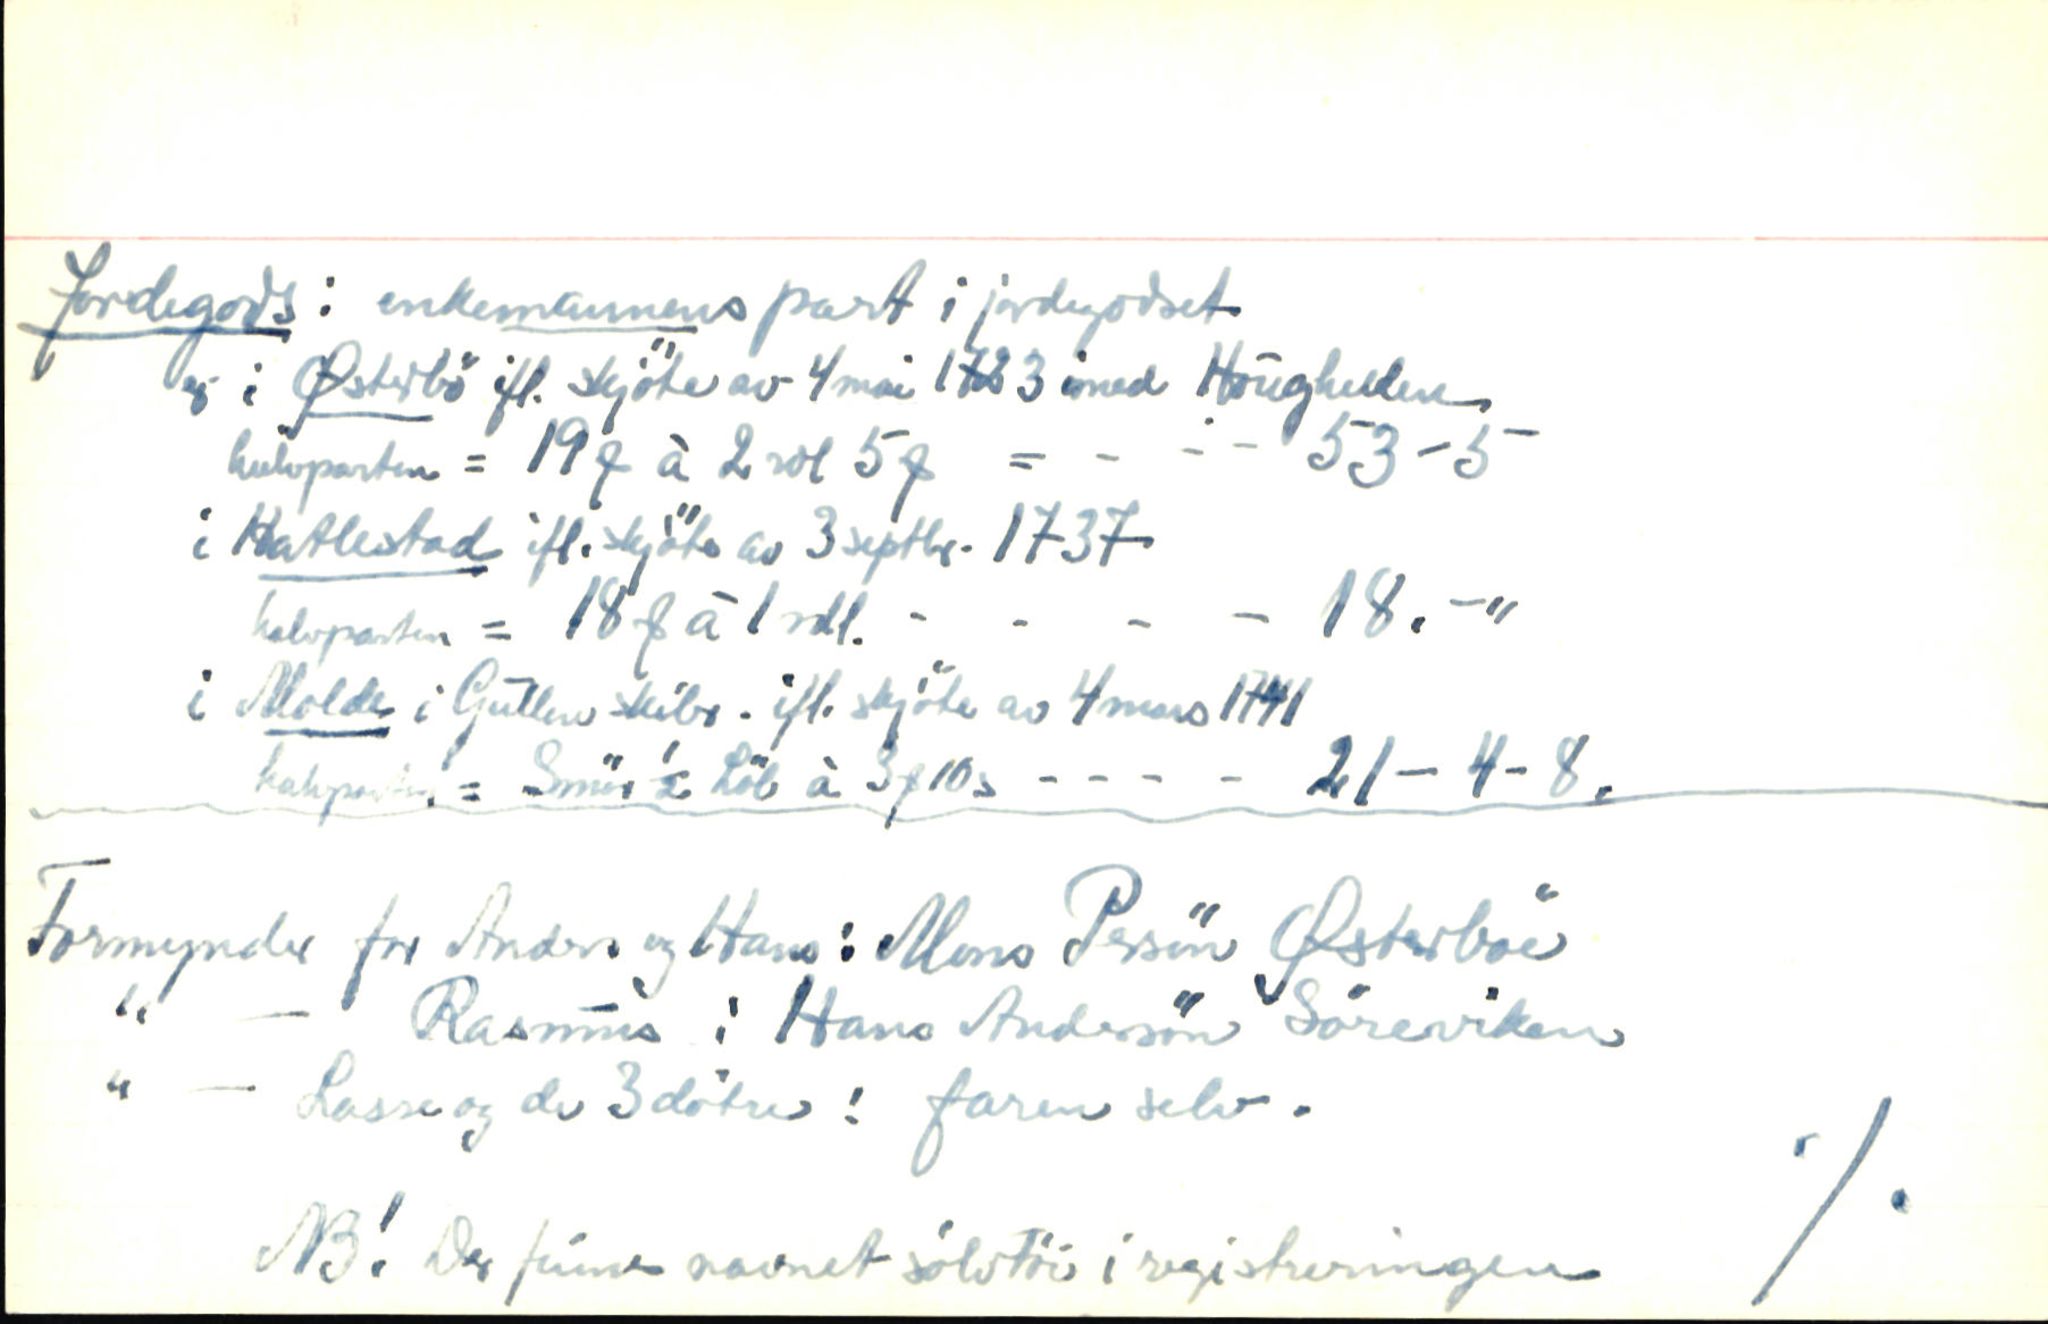 Jordegods: enkemannens part i jordegodset
og i Østerbö ifl. skjöte av 4 mai 1723 med Haughellen,
halvparten = 19 ƒ à 2 rdl 5 ƒ = - - - 53-5-
i Hatlestad ifl. skjöte av 3 septbr. 1737
halvparten = 18 ƒ à 1 rdl. - - - - 18.-"
i Molde i Gullen skibr. ifl. skjöte av 4 mars 1741
halvparten = Smör ½ Löb à 3 ƒ 10 s - - - - 21-4-8.
Formynder for Anders og Hans: Mons Persön Østerböe
" — Rasmus : Hans Andersön Söreviken
" — Lasse og de 3 dötre: faren selv.
NB! Der finnes navnet sölvtöi i registreringen
./.